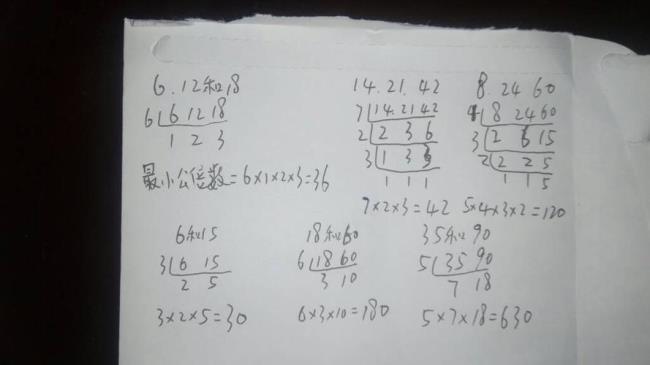 6.12和18
6 6 12 18
1 2 3
最小公倍数=6×1×2×3=36
14.21.42
7 14.21 42
2 2 3 6
3 1 3 3
1 1 1
7×2×3=42
8.24 60
4 8 24 60
3 2 6 15
2 2 2 5
1 1 5
5×4×3×2=120
6和15
3 6 15
2 5
3×2×5=30
18和60
6 18 60
3 10
6×3×10=180
35和90
5 35 90
7 18
5×7×18=630